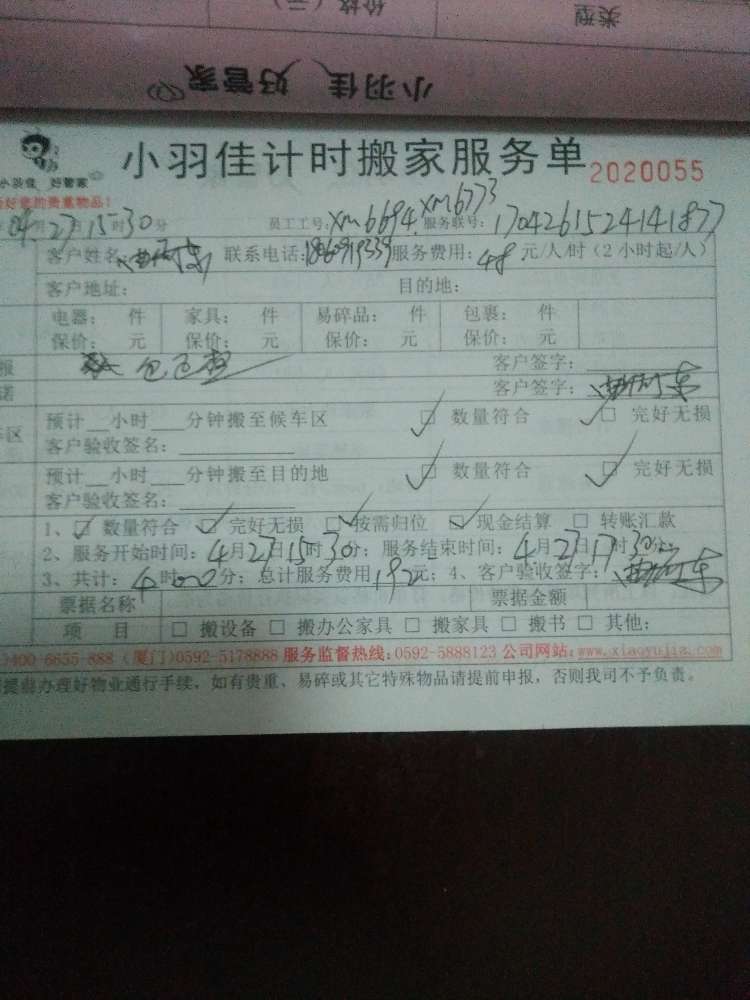 类型
价格（元）
小羽佳 好管家
小羽佳 好管家
小羽佳计时搬家服务单 2020055
好您的贵重物品！
04月27日15时30分 员工工号：xm6694 xm6773 服务联号：1704261524141877
客户姓名： 联系电话： 服务费用：48元/人/时（2小时起/人）
客户地址： 目的地：
电器： 件 家具： 件 易碎品： 件 包裹： 件
保价： 元 保价： 元 保价： 元 保价： 元
报 客户签字：
诺 客户签字：
预计__小时___分钟搬至候车区 □ 数量符合 □ 完好无损
车区
客户验收签名：
预计__小时___分钟搬至目的地 □ 数量符合 □ 完好无损
客户验收签名：
1、□ 数量符合 □ 完好无损 □ 按需归位 □ 现金结算 □ 转账汇款
2、服务开始时间：4月27日15时30分；服务结束时间：4月27日17时30分；
3、共计：4时00分；总计服务费用192元；4、客户验收签字：
票据名称 票据金额
项 目 □ 搬设备 □ 搬办公家具 □ 搬家具 □ 搬书 □ 其他：
)400-6655-888（厦门)0592-5178888 服务监督热线：0592-5888123 公司网站：www.xiaoyujia.com
提前办理好物业通行手续，如有贵重、易碎或其它特殊物品请提前申报，否则我司不予负责。